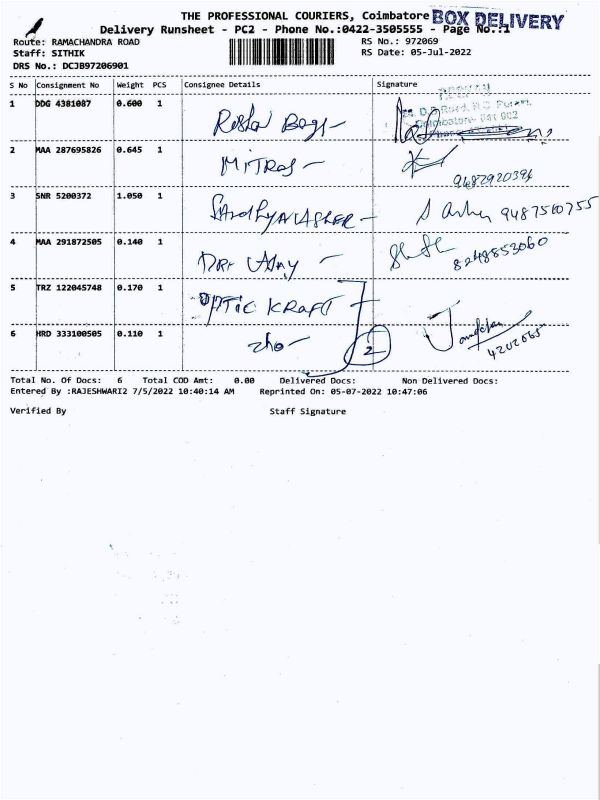 THE PROFESSIONAL COURIERS, Coimbatore BOX DELIVERY
Delivery Runsheet - PC2 - Phone No.:0422-3505555 - Page No.:1
Route: RAMACHANDRA ROAD RS No.: 972069
Staff: SITHIK RS Date: 05-Jul-2022
DRS No.: DCJB97206901
S No Consignment No Weight PCS Consignee Details Signature
1 DDG 4381087 0.600 1
Coimbatore- 641 002
2 MAA 287695826 0.645 1 MiTRaj
9487920394
3 SNR 5200372 1.050 1 9487560755
4 MAA 291872505 0.140 1
8248853060
5 TRZ 122045748 0.170 1 OPTIC KRAFT
6 HRD 333100505 0.110 1 2
4202065
Total No. Of Docs: 6 Total COD Amt: 0.00 Delivered Docs: Non Delivered Docs:
Entered By :RAJESHWARI2 7/5/2022 10:40:14 AM Reprinted On: 05-07-2022 10:47:06
Verified By Staff Signature